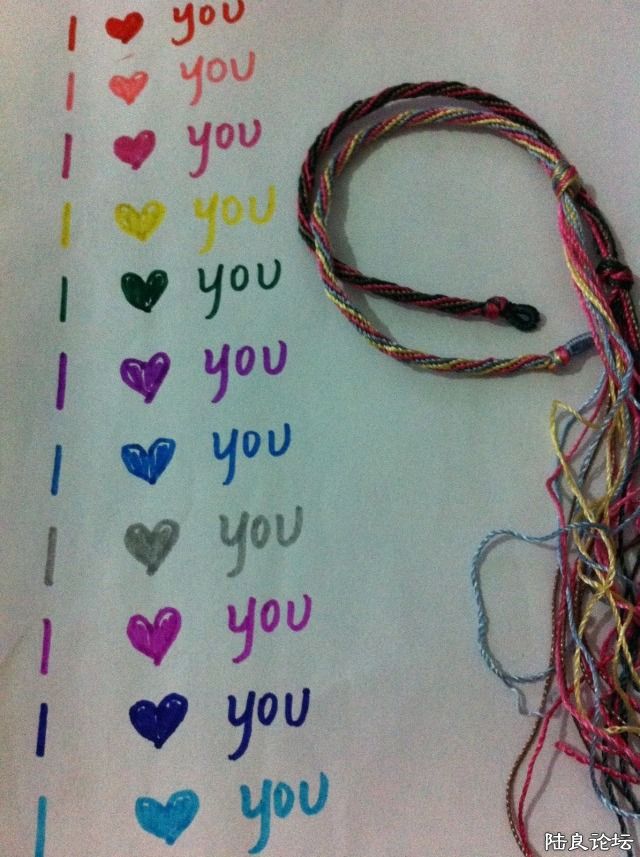 I ♥ you
I ♥ you
I ♥ you
I ♥ you
I ♥ you
I ♥ you
I ♥ you
I ♥ you
I ♥ you
I ♥ you
I ♥ you
陆良论坛